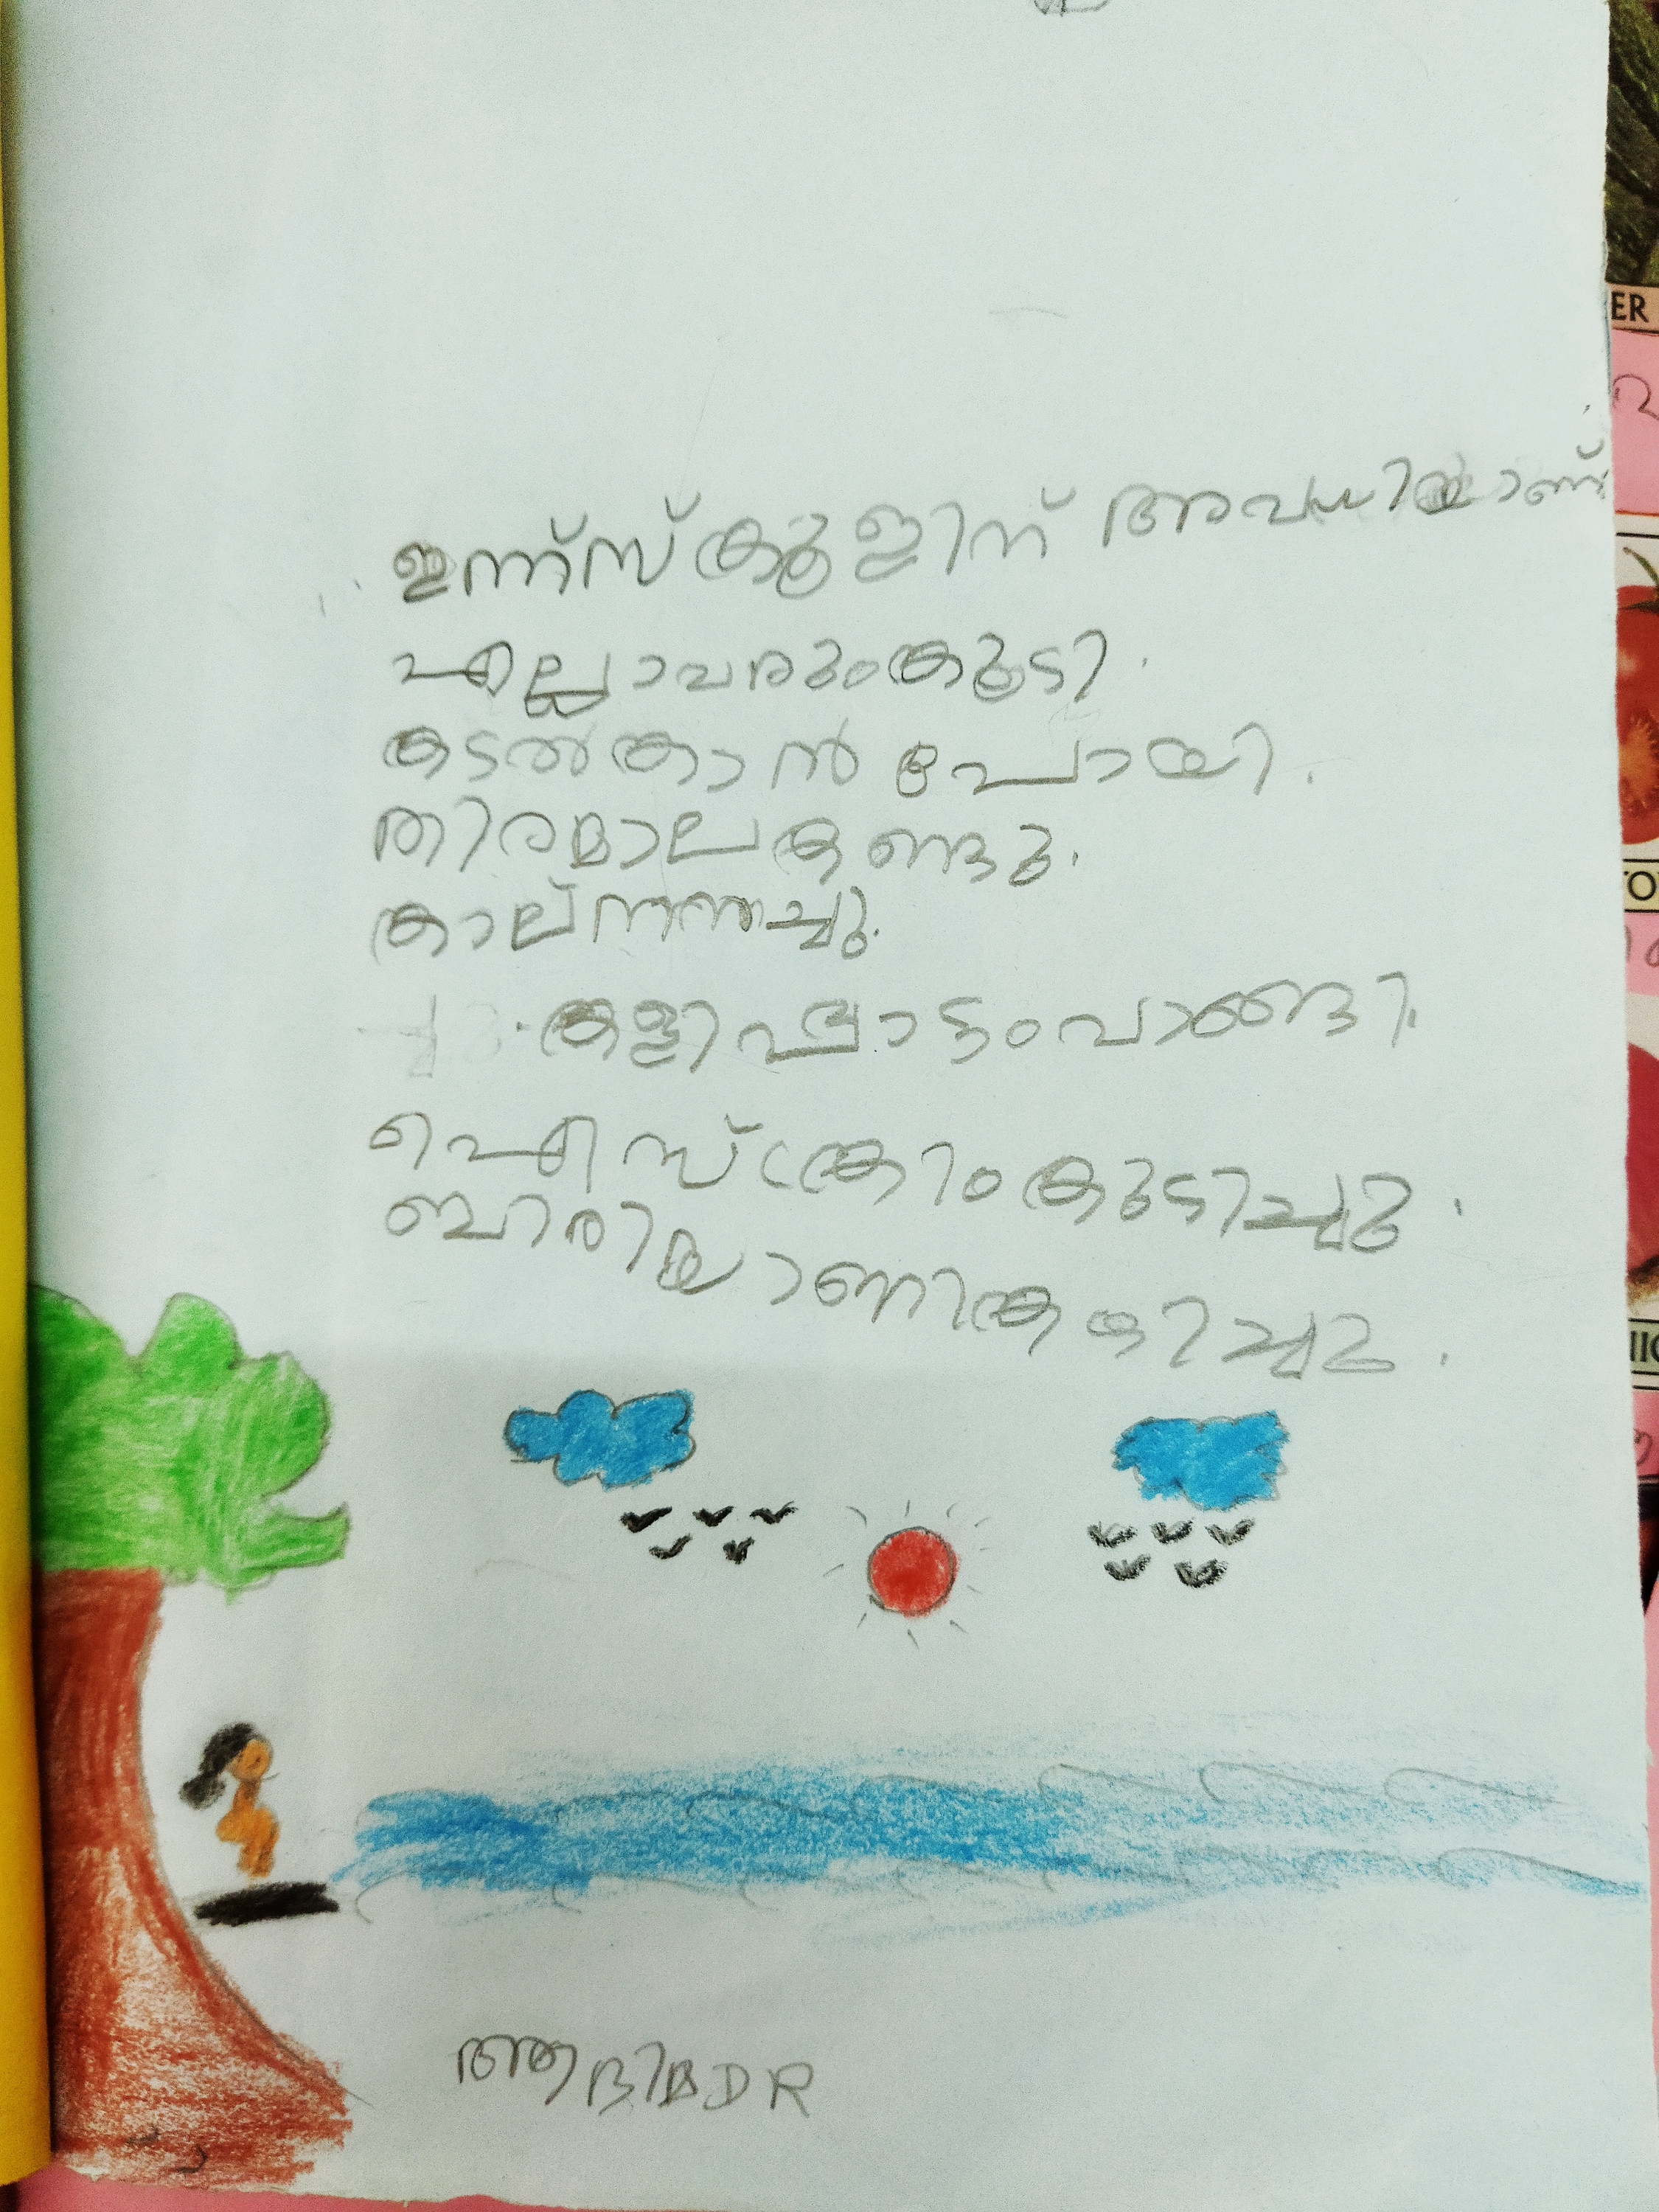 ഇന്ന്സ്കൂളിന് അവധിയാണ്
എല്ലാവരുംകൂടി.
കടൽകാൻ പോയി.
തിരമാലകണ്ടു.
കാല്നനച്ചു.
കളിപ്പാട്ടംവാങ്ങി.
ഐസ്ക്രീംകുടിച്ചു.
ബിരിയാണികഴിച്ചു.
ER